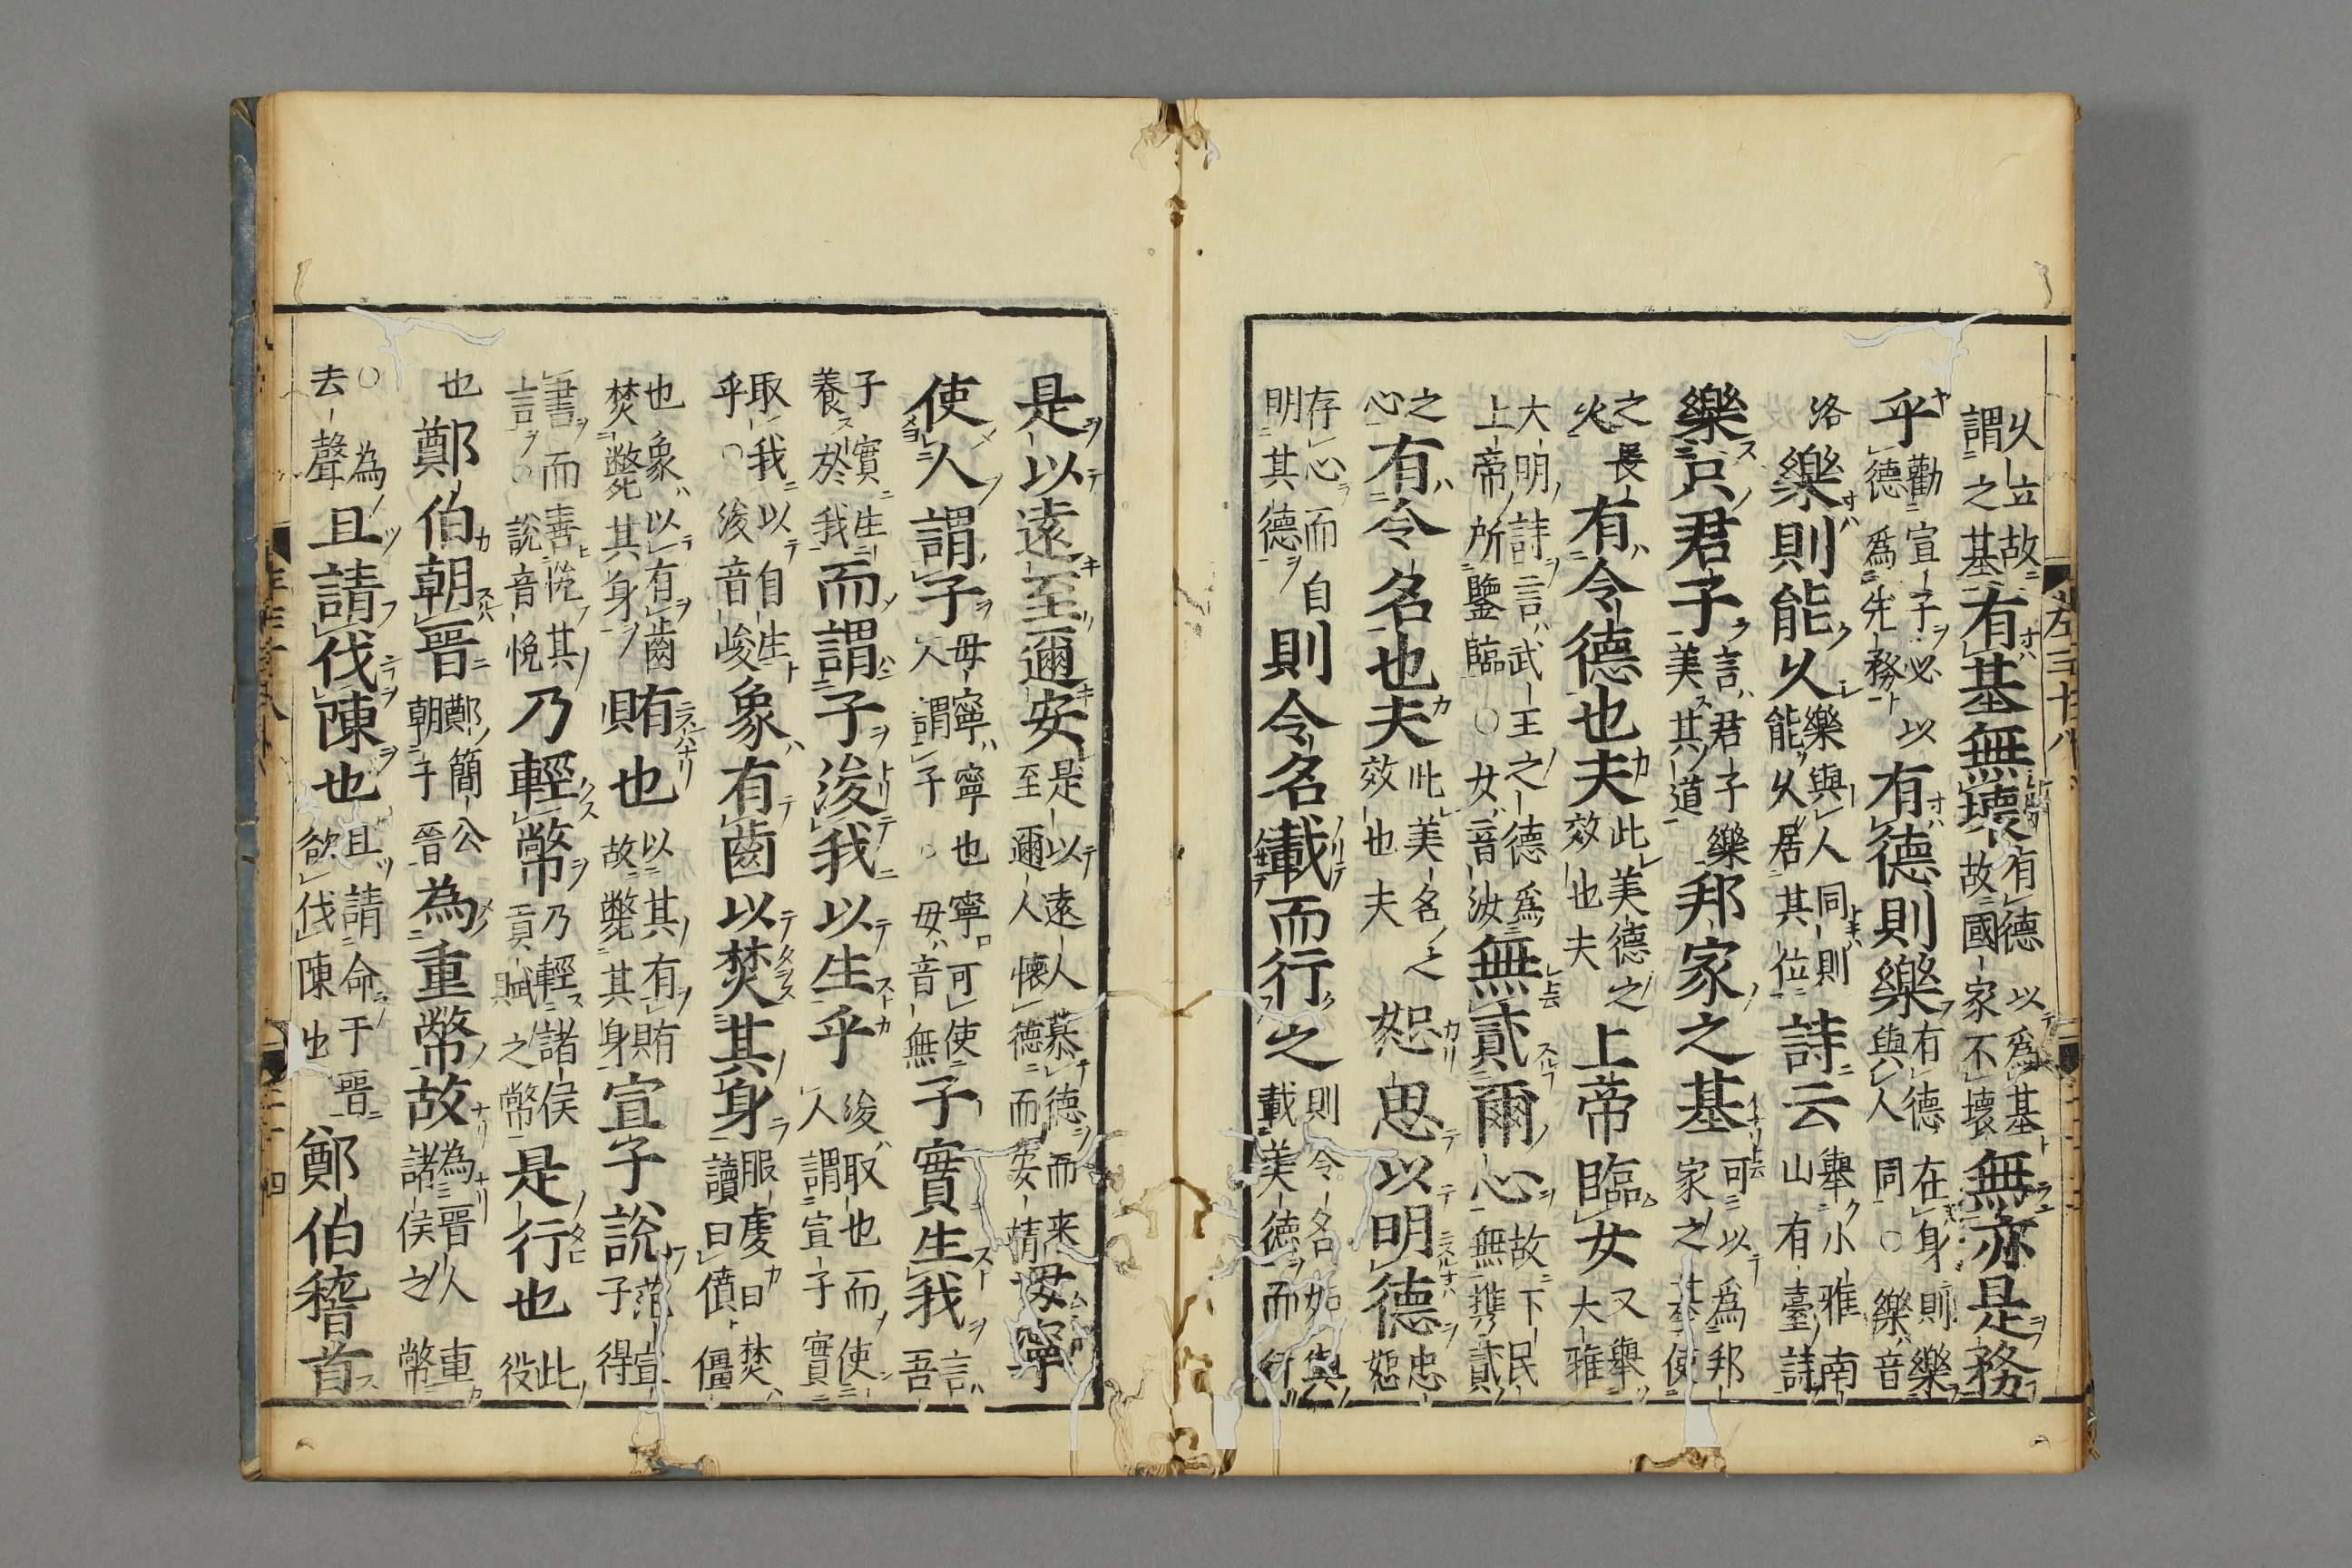 乆立故謂之基有基無壞有德以爲基故國家不壞無亦是務
乎勸宣子必以德爲先務有德則樂有德在身則樂與人同○樂音
洛樂則能乆樂與人同則能乆居其位詩云舉小雅南山有臺詩
樂只君子言君子樂美其道邦家之基可以爲邦家之使
之長乆有令德也夫此美德之效也夫上帝臨女又舉大雅
大明詩言武王之德爲上帝所鑒臨○女音汝無貳爾心故下民無攜貳
之心有令名也夫此美名之效也夫恕思以明德忠恕
存心而自明其德則令名載而行之則令名如輿載美德而行
是以遠至邇安是以遠人慕德而来至邇人懷德而安靖毋寧
使人謂子毋寧寧也寧可使人謂子○毋音無子實生我言吾
子實生養於我而謂子浚我以生乎浚取也而使人謂宣子實
取我以自生乎○浚音峻象有齒以焚其身服虔曰焚讀曰僨僵
也象以有齒焚斃其身賄也以其有賄故斃其身宣子說范宣子得
書而善悅其言○說音悅乃輕幣乃輕諸侯貢賦之幣是行也此役
也鄭伯朝晉鄭簡公朝于晉為重幣故為晉人重諸侯之幣
○為去聲且請伐陳也且請命于晉欲伐陳也鄭伯稽首